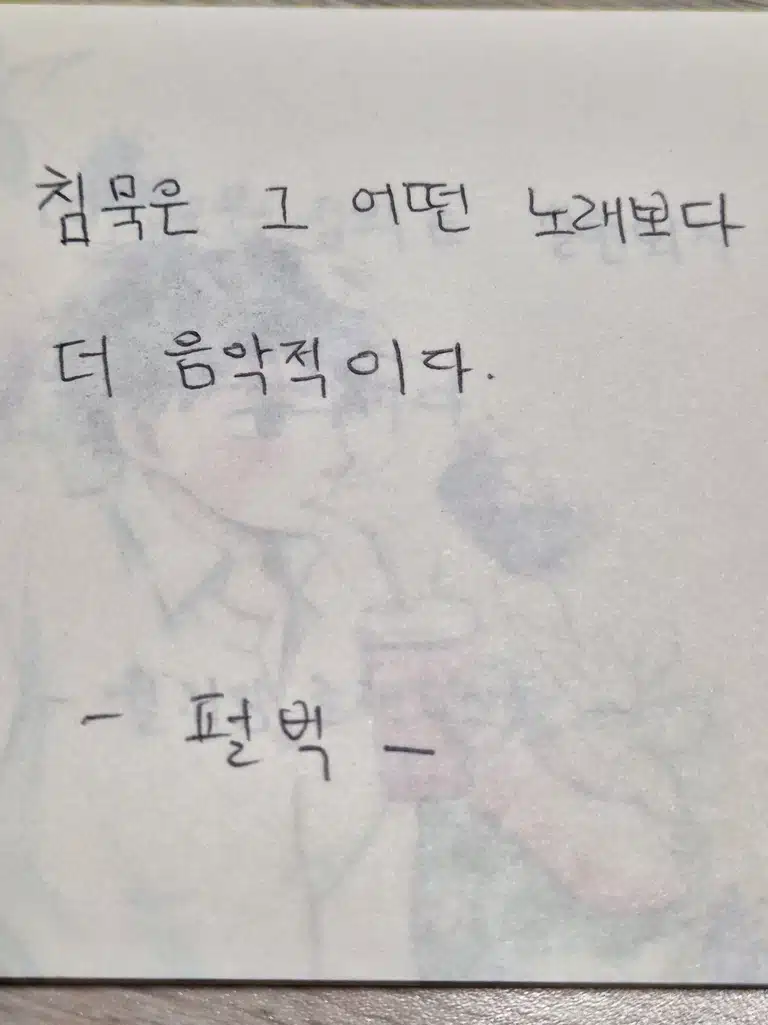 침묵은 그 어떤 노래보다
더 음악적이다.
- 펄벅 -